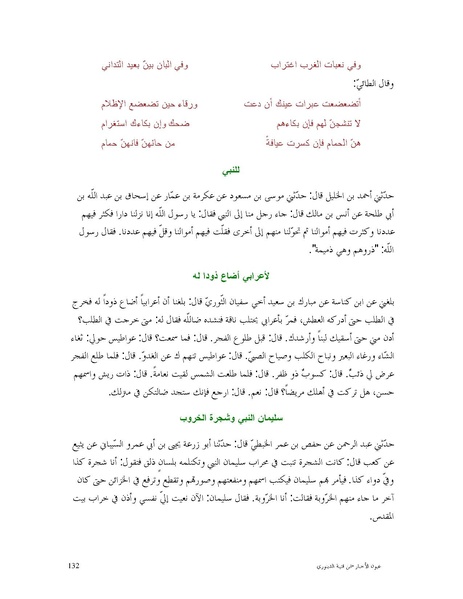 وفي نعبات الغرب اغتراب وفي البان بينٌ بعيد التّداني
وقال الطائيّ:
أتضعضعت عبرات عينك أن دعت ورقاء حين تضعضع الإظلام
لا تنشجنّ لهم فإن بكاءهم ضحك وإن بكاءك استغرام
هنّ الحمام فإن كسرت عيافةً من حائهنّ فإنهنّ حمام
للنبي
حدّثني أحمد بن الخليل قال: حدّثني موسى بن مسعود عن عكرمة بن عمّار عن إسحاق بن عبد اللّه بن
أبي طلحة عن أنس بن مالك قال: جاء رجل منا إلى النبي فقال: يا رسول اللّه إنا نزلنا دارا فكثر فيهم
عددنا وكثرت فيهم أموالنا ثم تحوّلنا منهم إلى أخرى فقلّت فيهم أموالنا وقلّ فيهم عددنا. فقال رسول
اللّه: "ذروهم وهي ذميمة".
لأعرابي أضاع ذودا له
بلغني عن ابن كناسة عن مبارك بن سعيد أخي سفيان الثّوريّ قال: بلغنا أن أعرابياً أضاع ذوداً له فخرج
في الطلب حتى أدركه العطش، فمرّ بأعرابي يحتلب ناقة فنشده ضالّته فقال له: متى خرجت في الطلب؟
أدن مني حتى أسقيك لبناً وأرشدك. قال: قبل طلوع الفجر. قال: فما سمعت؟ قال: عواطيس حولي: ثغاء
الشّاء ورغاء البعير ونباح الكلب وصياح الصبيّ. قال: عواطيس تنهم ك عن الغدوّ. قال: فلما طلع الفجر
عرض لي ذئبٌ. قال: كسوبٌ ذو ظفر. قال: فلما طلعت الشمس لقيت نعامةً. قال: ذات ريش واسمهم
حسن، هل تركت في أهلك مريضاً؟ قال: نعم. قال: ارجع فإنك ستجد ضالتكن في منزلك.
سليمان النبي وشجرة الخروب
حدّثني عبد الرحمن عن حفص بن عمر الخبطيّ قال: حدّثنا أبو زرعة يحيى بن أبي عمرو السّيباني عن يثيع
عن كعب قال: كانت الشجرة تنبت في محراب سليمان النبي وتكلمه بلسانٍ ذلق فتقول: أنا شجرة كذا
وفيّ دواء كذا. فيأمر بهم سليمان فيكتب اسمهم ومنفعتهم وصورتهم وتقطع وترفع في الخزائن حتى كان
آخر ما جاء منهم الخرّوبة فقالت: أنا الخرّوبة. فقال سليمان: الآن نعيت إليّ نفسي وأذن في خراب بيت
المقدس.
عيون الأخبار -ابن قتيبة الدينوري 132